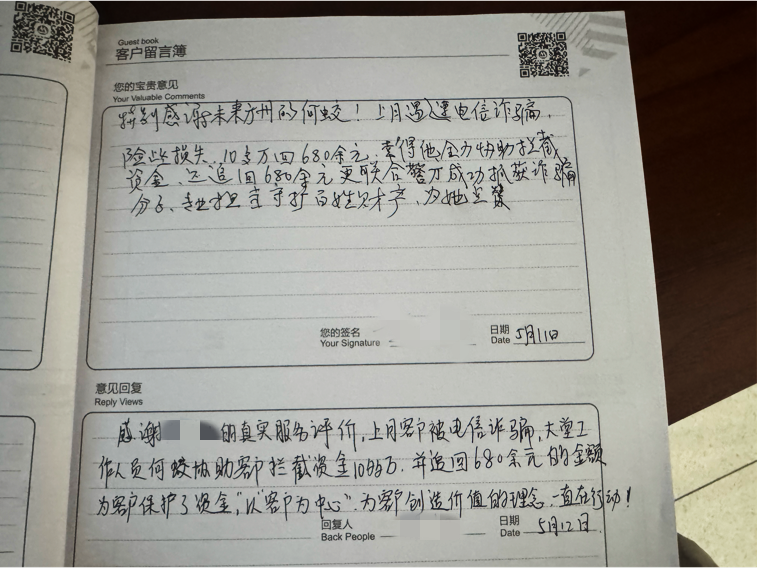 Guest book
客户留言簿
您的宝贵意见
Your Valuable Comments
特别感谢未来方州的何蛟！上月遇遭电信诈骗，
险些损失10多万回680余元，幸得他全力协助拦截
资金、还追回680余元更联合警方成功抓获诈骗
分子、专业担当守护百姓财产，为她点赞
您的签名
Your Signature
日期
Date 5月11日
意见回复
Reply Views
感谢 的真实服务评价，上月客户被电信诈骗，大堂工
作人员何蛟协助客户拦截资金10 万，并追回680余元的金额
为客户保护了资金，"以"客户为中心"，为客户创造价值的理念，一直在行动！
回复人
Back People
日期
Date 5月12日